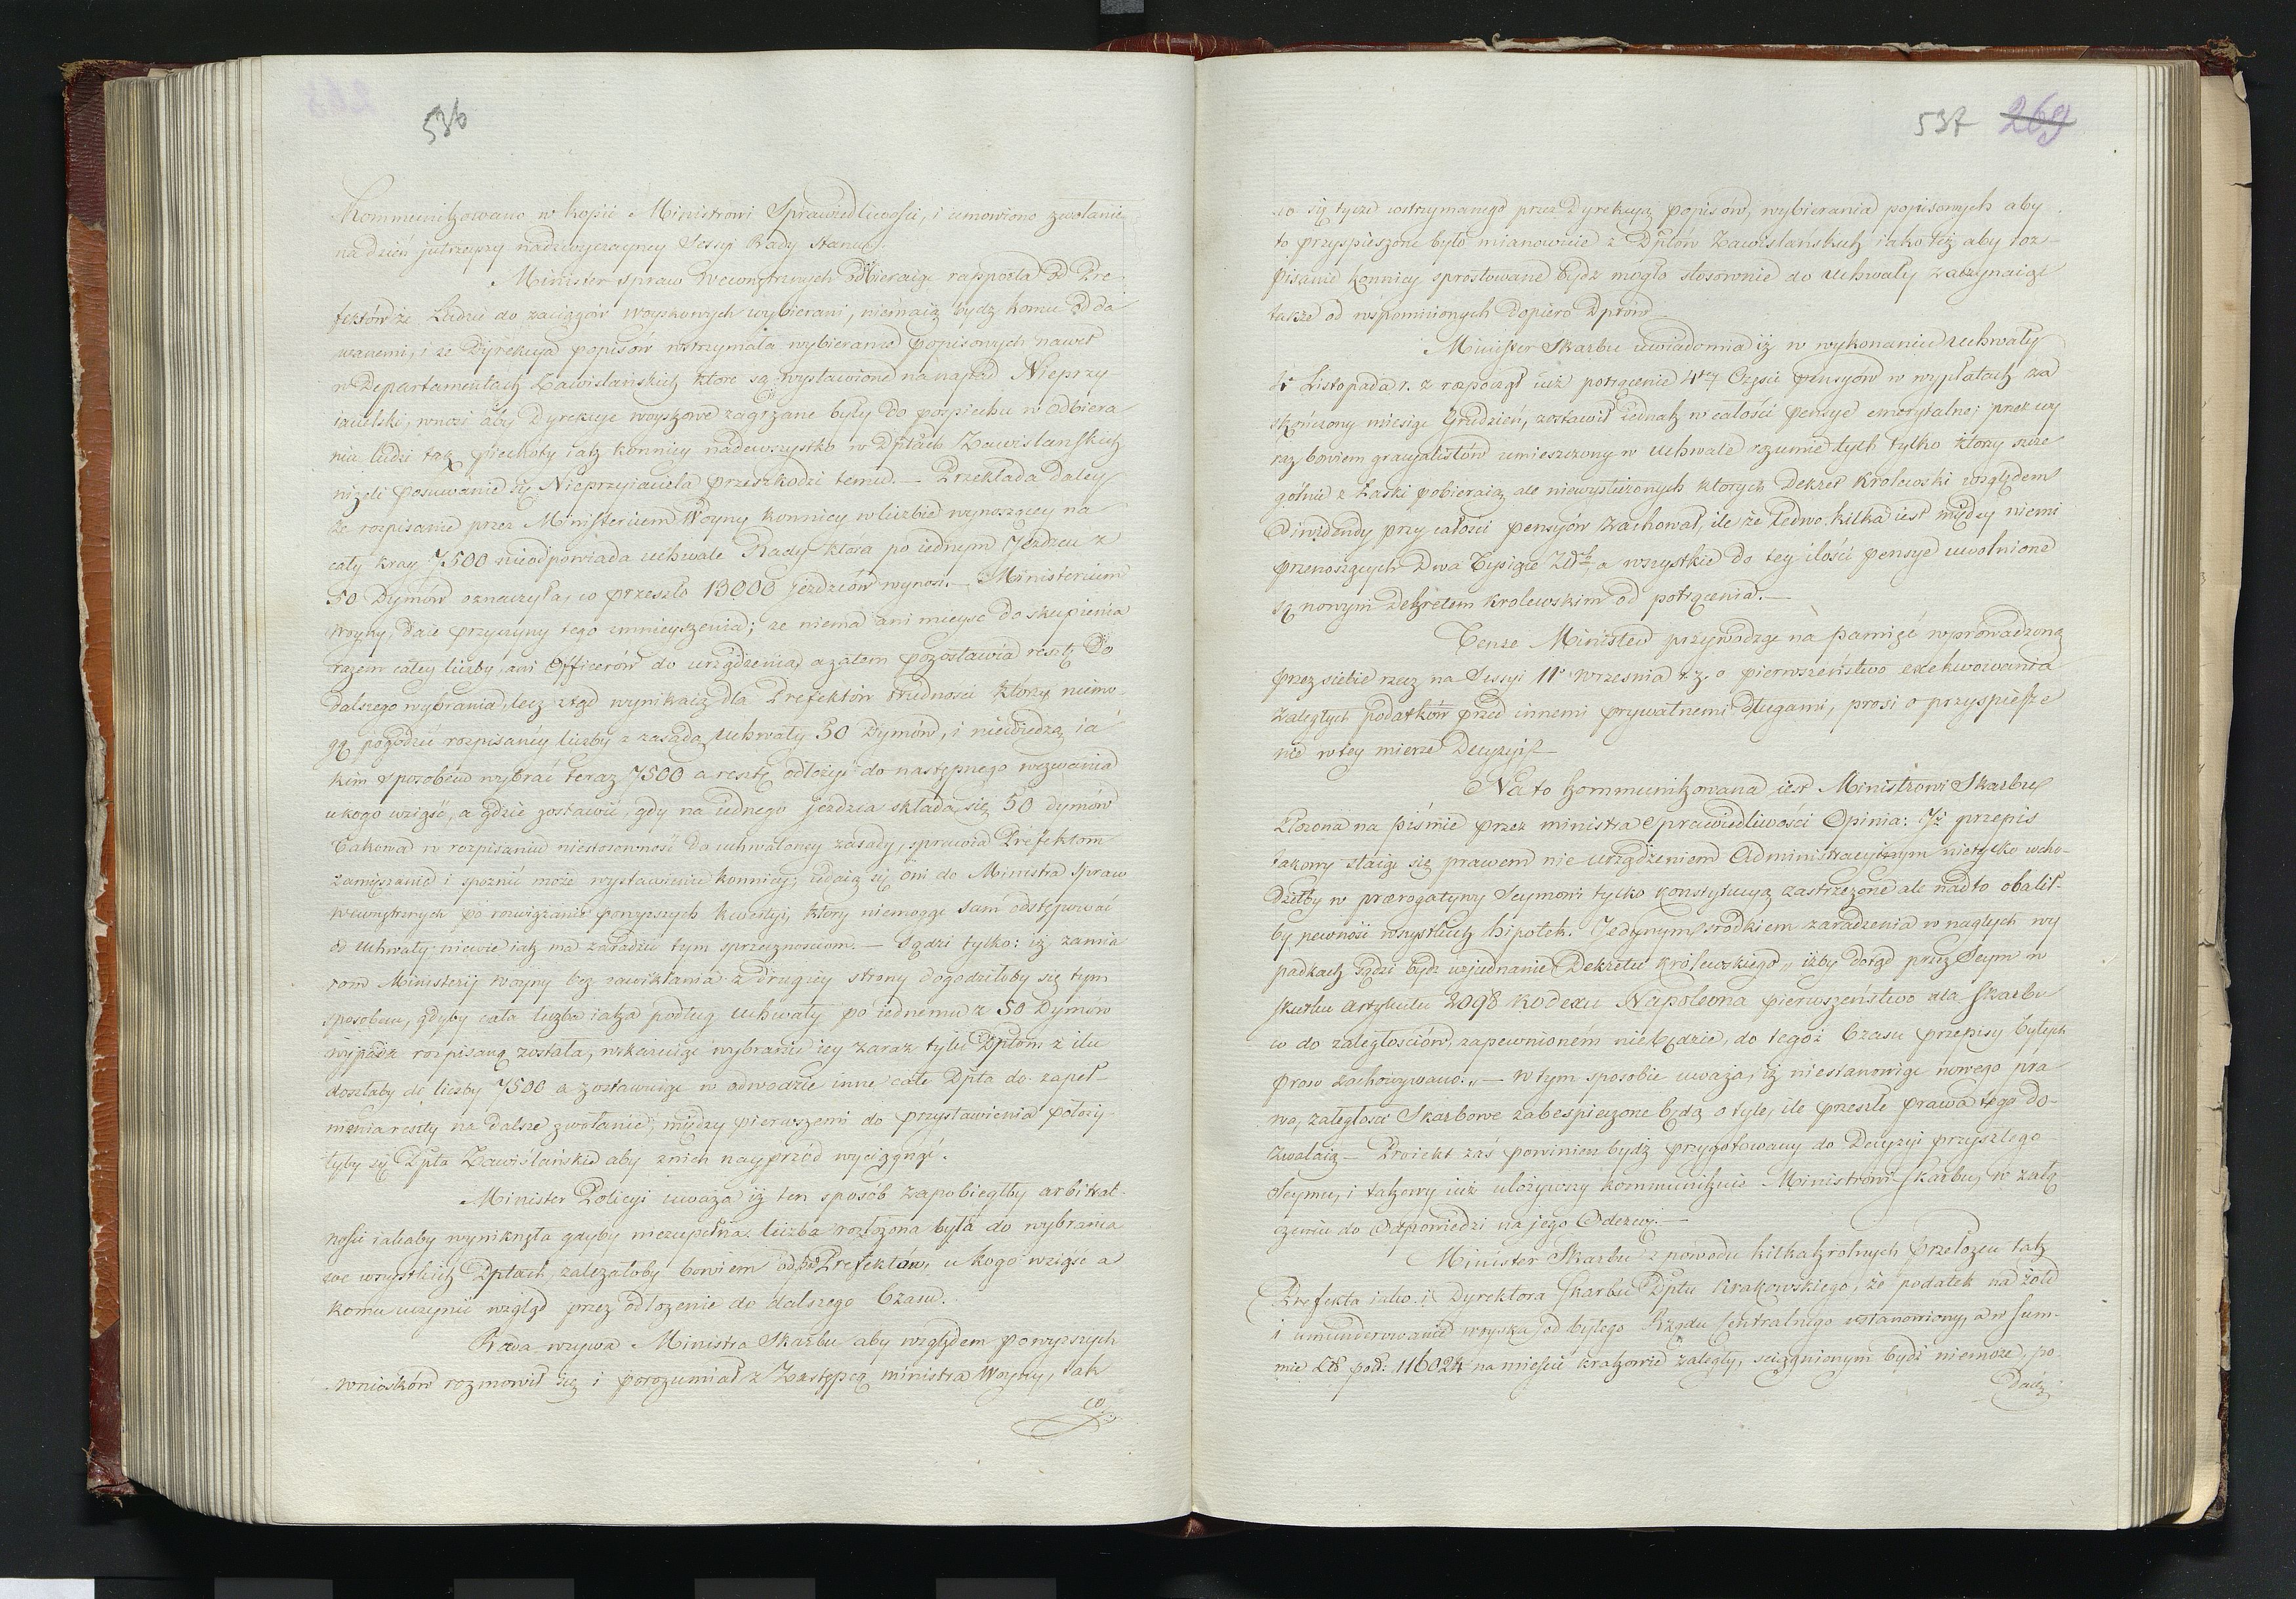 536
Kommunikowano w kopii Ministrowi Sprawiedliwości, i umowiono zwołanie
na dzień jutrzeyszy nadzwyczayney Sessyi Rady Stanu.
Minister spraw Wewnętrznych odbieraiąc rapporta od Pre-
fektów że Ludzie do zaciągów woyskowych wybierani, niemaią bydź komu odda
wanemi, i że Dyrekcya popisów wstrzymała wybieranie popisowych nawet
w Departamentach Zawislańskich które są wystawione na napad Nieprzy-
iacielski, wnosi aby Dyrekcye woyskowe zagrzane były do pospiechu w odbiera
niu ludzi tak piechoty iak konnicy nadewszystko w Dptach Zawislanskich
niżeli posuwanie się Nieprzyiaciela przeszkodzi temu. — Przekłada daley
że rozpisanie przez Ministerium Woyny konnicy w liczbie wynoszącey na
cały kray 7500 nieodpowiada uchwale Rady która po iednym Jezdzcu z
50 Dymów oznaczyła, co przeszło 13000 jezdzców wynosi. — Ministerium
Woyny, daie przyczyny tego zmnieyszenia; że niema ani mieysc do skupienia
razem całey liczby, ani Officerów do urządzenia, a zatem pozostawia resztę do
dalszego wybrania, lecz ztąd wynikaią dla Prefektów trudności którzy niemo-
gą pogodzić rozpisaney liczby z zasadą Uchwały 50 Dymów, i niewiedzą ia
kim sposobem wybrać teraz 7500 a resztę odłożyć do następnego wezwania
u kogo wziąść, a gdzie zostawić, gdy na iednego jezdzca składa się 50 dymów
Takowa w rozpisaniu niestosowność do uchwaloney zasady, sprawia Prefektom
zamięszanie i spoznić może wystawienie konnicy; udaią się oni do Ministra Spraw
wewnętrznych po rozwiązanie powyższych kwestyi, który niemogąc sam odstępować
od uchwały niewie iak ma zaradzić tym sprzecznosciom. — Sądzi tylko: iż zamia
rom Ministerii woyny bez zawikłania z drugiey strony dogodziłoby się tym
sposobem, gdyby cała liczba iaka podług uchwały po iednemu z 50 Dymów
wypada rozpisaną została, wskazuiąc wybranie iey zaraz tylu Dptom z ilu
doszłaby do liczby 7500 a zostawuiąc w odwodzie inne całe Dpta do zapeł-
nienia reszty na dalsze zwołanie; między pierwszemi do przystawienia położy-
łyby się Dpta Zawislańskie aby z nich nayprzód wyciągnąć.
Minister Policyi uważa iż ten sposób zapobiegłby arbitral-
ności iakaby wyniknęła gdyby niezupełna liczba rozłożona była do wybrania
we wszystkich Dptach, zależałoby bowiem od Prefektów, u kogo wziąść a
komu uczynić wzgląd przez odłożenie do dalszego Czasu.
Rada wzywa Ministra Skarbu aby względem powyższych
wniosków rozmowił się i porozumiał z Zastępcą ministra Woyny, tak
co
537 269
co się tycze wstrzymanego przez Dyrekcyą popisów, wybierania popisowych aby
to przyspieszone było mianowicie z Dptów Zawislańskich iako też aby roz-
pisanie konnicy sprostowane bydź mogło stosownie do uchwały zaczynaiąc
także od wspomnionych dopiero Dptów.
Minister Skarbu uwiadomia iż w wykonaniu Uchwały
4 Listopada r. z. rozpoczął iuż potrącenie 4tey Części pensyów w wypłatach za
skończony miesiąc Grudzień, zostawił iednak w całości pensye emerytalne; przez wy
raz bowiem gracyalistów umieszczony w uchwale rozumie tych tylko którzy szcze
gólnie z Łaski pobieraią, ale niewysłużonych których Dekret Krolewski względem
Diwidendy przy całości pensyów zachował, ile że ledwo kilka iest między niemi
przenoszących Dwa Tysiące Zł. a wszystkie do tey ilości pensye uwolnione
są nowym Dekretem Krolewskim od potrącenia. —
Tenże Minister przywodząc na pamięć wprowadzoną
przez siebie rzecz na Sessyi 11 Wrzesnia r. z. o pierwszeństwo exekwowania
zaległych podatków przed innemi prywatnemi długami, prosi o przyspiesze
nie w tey mierze Decyzyi. —
Na to kommunikowana iest Ministrowi Skarbu
złożona na piśmie przez ministra Sprawiedliwości Opinia: Iż przepis
takowy staiąc się prawem nie urządzeniem Administracyinym nietylko wcho-
dziłby w prerogatywy Seymowi tylko konstytucyą zastrzeżone ale nadto obalił-
by pewność wszystkich hipotek. Jedynym środkiem zaradzenia w nagłych wy
padkach sądzi bydź wyiednanie Dekretu Królewskiego „iżby dotąd przez Seym w
skutku Artykułu 2098 Kodexu Napoleona pierwszeństwo dla skarbu
co do zaległościów, zapewnioném niebędzie, do tegoż Czasu przepisy byłych
praw zachowywano.„ — W tym sposobie uważa, iż niestanowiąc nowego pra
wa, zaległości Skarbowe zabespieczone będą o tyle, ile przeszłe prawa tego do-
zwalaią — Proiekt zaś powinien bydź przygotowany do Decyzyi przyszłego
Seymu, i takowy iuż ułożywszy kommunikuie Ministrowi Skarbu, w załą
czeniu do Odpowiedzi na jego Odezwę. —
Minister Skarbu z powodu kilkakrotnych przełożeń tak
Prefekta iako i Dyrektora Skarbu Dptu Krakowskiego, że podatek na żołd
i umunderowanie woyska od byłego Rządu Centralnego ustanowiony, a w sum-
mie Zł. pol: 116024 na mieście Krakowie zaległy, sciągnionym bydź niemoże, po
dadzą